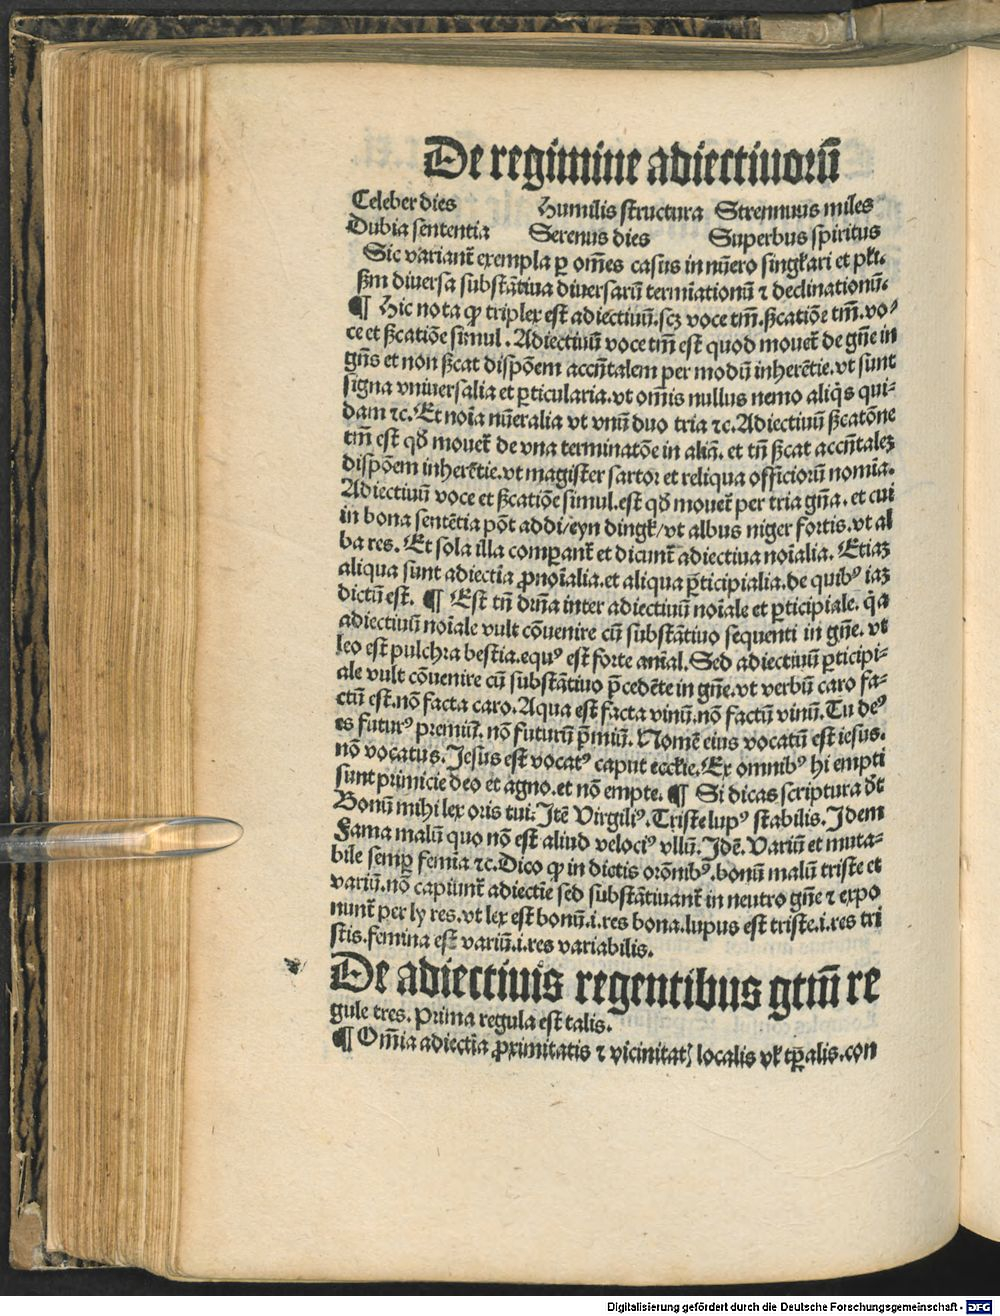 De regimine adiectiuorū
Celeber dies Humilis structura Strennuus miles
Dubia sententia Serenus dies Superbus spiritus
Sic variant̄ exempla ꝑ om̄es casus in nūero singlari et plɩ̄.
ẜm diuersa substātiua diuersarū termīationū ⁊ declinationū.
¶ Hic nota ꝙ triplex est adiectiuū.scꝫ voce tm̄.ẜcatiōe tm̄.vo⸗
ce et ẜcatiōe simul. Adiectiuū voce tm̄ est quod mouet̄ de gn̄e in
gn̄s et non ẜcat dispōem accn̄talem per modū inherētie.vt sunt
signa vniuersalia et ꝑticularia.vt om̄is nullus nemo aliq̄s qui⸗
dam ⁊c. Et noīa nūeralia vt vnū duo tria ⁊c. Adiectiuū ẜcatōne
tm̄ est qð mouet̄ de vna terminatōe in aliā. et tn̄ ẜcat accn̄taleꝫ
dispōem inherētie.vt magister sartor et reliqua officiorū nomīa.
Adiectiuū voce et ẜcatiōe simul.est qð mouet̄ per tria gn̄a. et cui
in bona sentētia pōt addi/eyn dingk/vt albus niger fortis.vt al
ba res. Et sola illa comparant̄ et dicunt̄ adiectiua noīalia. Etiaꝫ
aliqua sunt adiectīa ꝓnoīalia.et aliqua ꝑticipialia.de quibꝰ iaꝫ
dictū est. ¶ Est tn̄ dr̄ıa inter adiectiuū noīale et ꝑticipiale. q̄a
adiectiuū noīale vult cōuenire cū substātiuo sequenti in gn̄e. vt
leo est pulchra bestia.equꝰ est forte anīal. Sed adiectiuū ꝑticipi⸗
ale vult cōuenire cū substātiuo p̄cedēte in gn̄e.vt verbū caro fa⸗
ctū est.nō facta caro.Aqua est facta vinū.nō factū vinū.Tu deꝰ
es futurꝰ premiū. nō futurū p̄miū. Nomē eius vocatū est iesus.
nō vocatus. Jesus est vocatꝰ caput eccl̄ie. Ex omnibꝰ hi empti
sunt primicie deo et agno.et nō empte. ¶ Si dicas scriptura dt̄
Bonū mihi lex oris tui. Jtē Virgiliꝰ. Triste lupꝰ stabilis. Jdem
Fama malū quo nō est aliud velociꝰ vllū. Jdē. Variū et muta⸗
bile semꝑ femīa ⁊c. Dico ꝙ in dictis orōnibꝰ.bonū malū triste et
variū.nō capiunt̄ adiectīe sed substātiuant̄ in neutro gn̄e ⁊ expo
nunt̄ per ly res.vt lex est bonū.i.res bona.lupus est triste.i.res tri
stis.femina est variū.i.res variabilis.
De adiectiuis regentibus gtiū re
gule tres. Prima regula est talis.
¶ Om̄ia adiectīa ꝓximitatis ⁊ vicinitatꝭ localis vl̄ tꝑalis.con
Digitalisierung gefördert durch die Deutsche Forschungsgemeinschaft - DFG